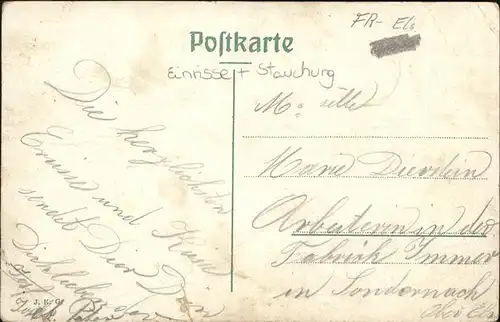 FR- Els
Postkarte
Einrisse + Stauchung
Die herzlichsten
Grüsse und Küsse
sendet Dir Dein
M^e elle
Marie Dierstein
Arbeiterin in der
Fabrick Immer
in Sondernach
Ober Els
J. K. G.